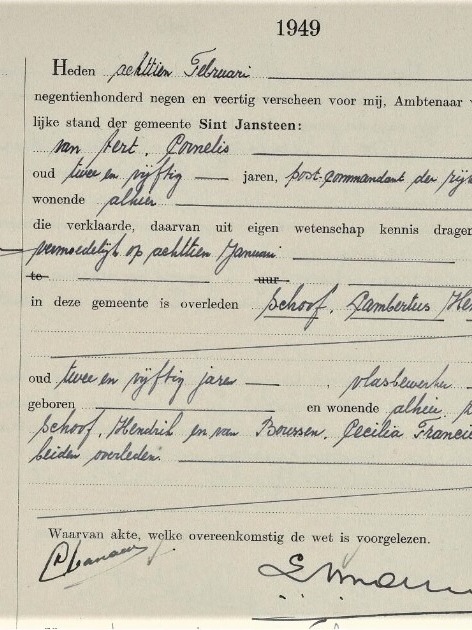 1949
Heden achttien Februari
negentienhonderd negen en veertig verscheen voor mij, Ambtenaar
lijke stand der gemeente Sint Jansteen:
van Aert, Cornelis
oud twee en vijftig jaren, post-commandant der rijk
wonende alhier
die verklaarde, daarvan uit eigen wetenschap kennis drage
vermoedelijk op achttien Januari
te uur
in deze gemeente is overleden Schoof, Lambertus He
oud twee en vijftig jaren, vlasbewerker
geboren en wonende alhier,
Schoof, Hendrik en van Boussen, Cecilia Franci
beiden overleden.
Waarvan akte, welke overeenkomstig de wet is voorgelezen.